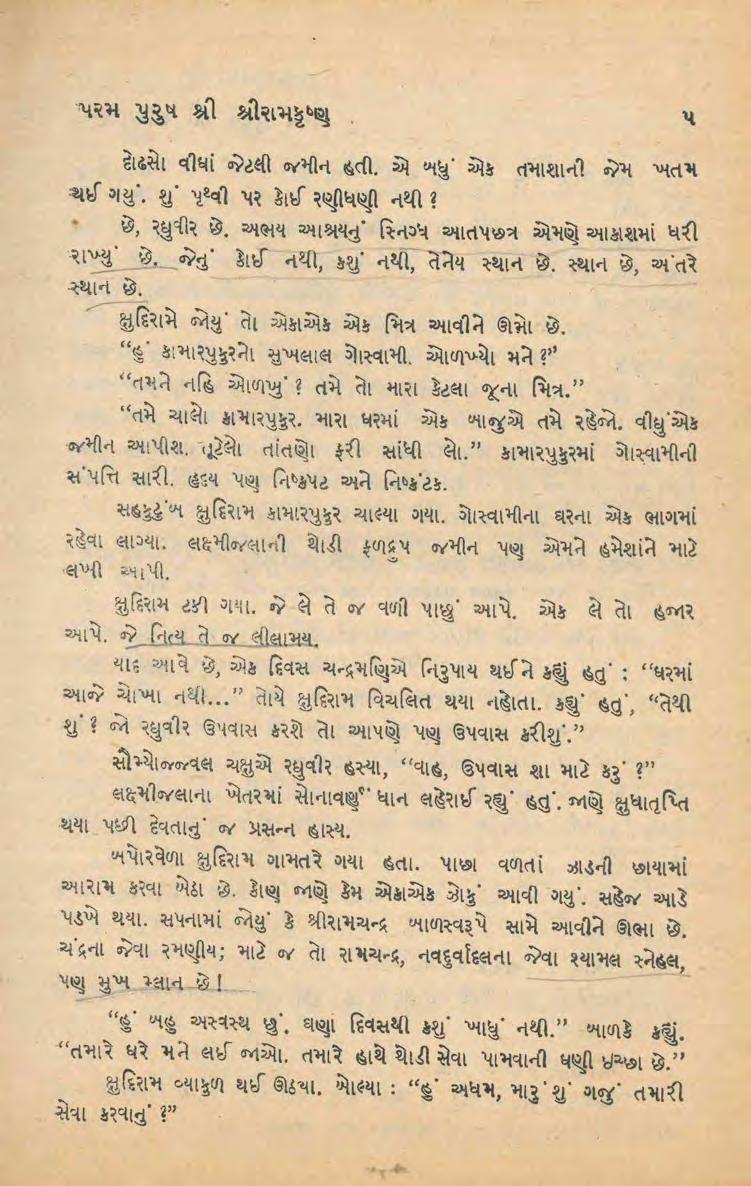 પરમ પુરુષ શ્રી શ્રીરામકૃષ્ણ ૫
દોઢસો વીઘાં જેટલી જમીન હતી. એ બધું એક તમાશાની જેમ ખતમ
થઈ ગયું. શું પૃથ્વી પર કોઈ રણીધણી નથી ?
છે, રઘુવીર છે. અભય આશ્રયનું સ્નિગ્ધ આતપછત્ર એમણે આકાશમાં ધરી
રાખ્યું છે. જેનું કોઈ નથી, કશું નથી, તેનેય સ્થાન છે. સ્થાન છે, અંતરે
સ્થાન છે.
ક્ષુદિરામે જોયું તો એકાએક એક મિત્ર આવીને ઊભો છે.
“હું કામારપુકુરનો સુખલાલ ગોસ્વામી. ઓળખ્યો મને ?”
“તમને નહિ ઓળખું ? તમે તો મારા કેટલા જૂના મિત્ર.”
“તમે ચાલો કામારપુકુર. મારા ઘરમાં એક બાજુએ તમે રહેજો. વીઘુંએક
જમીન આપીશ. તૂટેલો તાંતણો ફરી સાંધી લો.” કામારપુકુરમાં ગોસ્વામીની
સંપત્તિ સારી. હૃદય પણ નિષ્કપટ અને નિષ્કંટક.
સહકુટુંબ ક્ષુદિરામ કામારપુકુર ચાલ્યા ગયા. ગોસ્વામીના ઘરના એક ભાગમાં
રહેવા લાગ્યા. લક્ષ્મીજલાની થોડી ફળદ્રુપ જમીન પણ એમને હમેશાંને માટે
લખી આપી.
ક્ષુદિરામ ટકી ગયા. જે લે તે જ વળી પાછું આપે. એક લે તો હજાર
આપે. જે નિત્ય તે જ લીલામય.
યાદ આવે છે, એક દિવસ ચન્દ્રમણિએ નિરુપાય થઈને કહ્યું હતું : “ઘરમાં
આજે ચોખા નથી...” તોયે ક્ષુદિરામ વિચલિત થયા નહોતા. કહ્યું હતું, “તેથી
શું ? જો રઘુવીર ઉપવાસ કરશે તો આપણે પણ ઉપવાસ કરીશું.”
સૌમ્યોજ્જવલ ચક્ષુએ રઘુવીર હસ્યા, “વાહ, ઉપવાસ શા માટે કરું ?”
લક્ષ્મીજલાના ખેતરમાં સોનાવર્ણું ધાન લહેરાઈ રહ્યું હતું. જાણે ક્ષુધાતૃપ્તિ
થયા પછી દેવતાનું જ પ્રસન્ન હાસ્ય.
બપોરવેળા ક્ષુદિરામ ગામતરે ગયા હતા. પાછા વળતાં ઝાડની છાયામાં
આરામ કરવા બેઠા છે. કોણ જાણે કેમ એકાએક ઝોકું આવી ગયું. સહેજ આડે
પડખે થયા. સપનામાં જોયું કે શ્રીરામચન્દ્ર બાળસ્વરૂપે સામે આવીને ઊભા છે.
ચંદ્રના જેવા રમણીય; માટે જ તો રામચન્દ્ર, નવદુર્વાદલના જેવા શ્યામલ સ્નેહલ,
પણ મુખ મ્લાન છે !
“હું બહુ અસ્વસ્થ છું. ઘણા દિવસથી કશું ખાધું નથી.” બાળકે કહ્યું.
“તમારે ઘરે મને લઈ જાઓ. તમારે હાથે થોડી સેવા પામવાની ઘણી ઇચ્છા છે.”
ક્ષુદિરામ વ્યાકુળ થઈ ઊઠ્યા. બોલ્યા : “હું અધમ, મારું શું ગજું તમારી
સેવા કરવાનું ?”